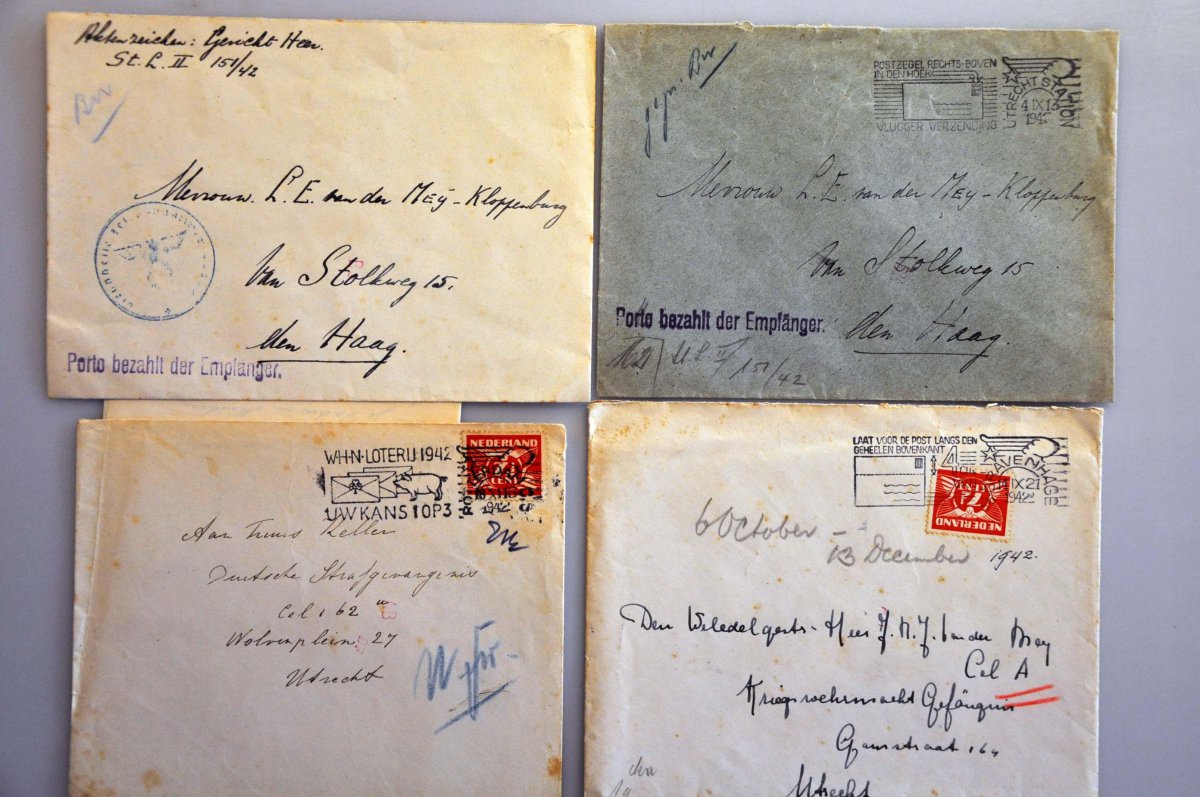 Aktenzeichen: Gericht Heer.
St. L. II 151/42
Mevrouw. L. E. van der Meÿ - Kloppenburg
van Stolkweg 15.
den Haag.
Porto bezahlt der Empfänger.
POSTZEGEL RECHTS-BOVEN
IN DEN HOEK
VLUGGER VERZENDING
UTRECHT STATION
4 IX 13
1942
Mevrouw L. E. van der Meÿ - Kloppenburg
van Stolkweg 15
den Haag.
Porto bezahlt der Empfänger.
St L II / 151/42
W.H.N. LOTERIJ 1942
UW KANS 1 OP 3
NEDERLAND
CENT
1942
Aan Truus Keller
Deutsche Strafgevangenis
Cel 162
Wolvenplein 27
Utrecht
LAAT VOOR DE POST LANGS DEN
GEHEELEN BOVENKANT
IX 21
1942
NEDERLAND
CENT
6 October -
13 December 1942.
Den Weledelgeb. Heer J. M. J. van der Mey
Cel A
Kriegswehrmacht Gefängnis
Gansstraat 164
Utrecht